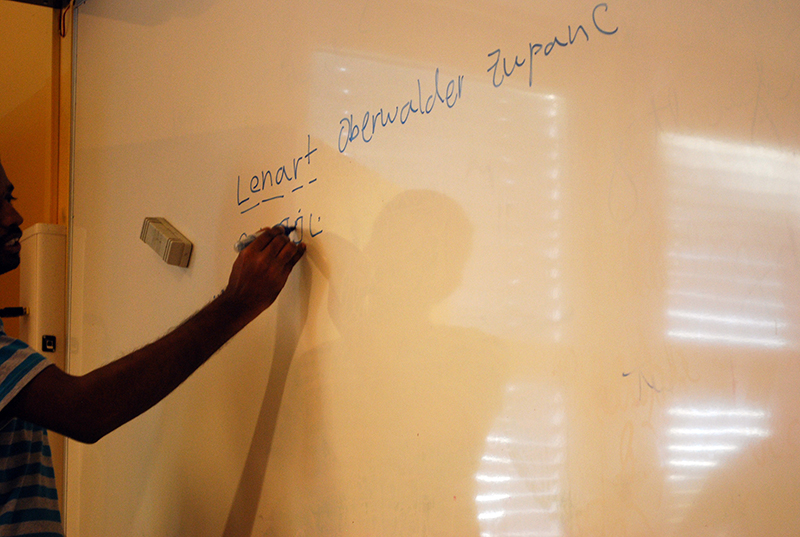 Lenart Oberwalder Zupanc